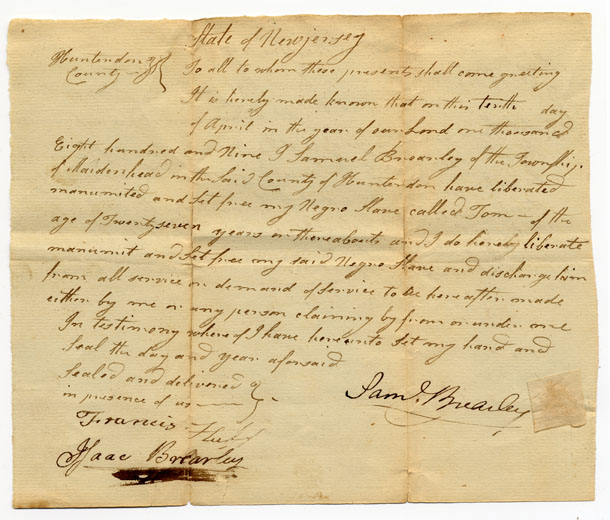 State of Newjersey
Huntendon
County
To all to whom these presents shall come greeting
It is hereby made known that on this tenth day
of April in the year of our Lord one thousand
Eight hundred and Nine I Samuel Brearley of the Township
of Maidenhead in the said County of Huntendon have liberated
manumited and set free my Negro Slave called Tom — of the
age of Twenty seven years or thereabouts and I do hereby liberate
manumit and set free my said Negro Slave and discharge him
from all service or demand of service to be hereafter made
either by me or any person claiming by from or under me
In testimony whereof I have hereunto set my hand and
seal the day and year aforsaid
Sealed and delivered
in presence of us
Saml. Brearley
Francis
Isaac Brearley